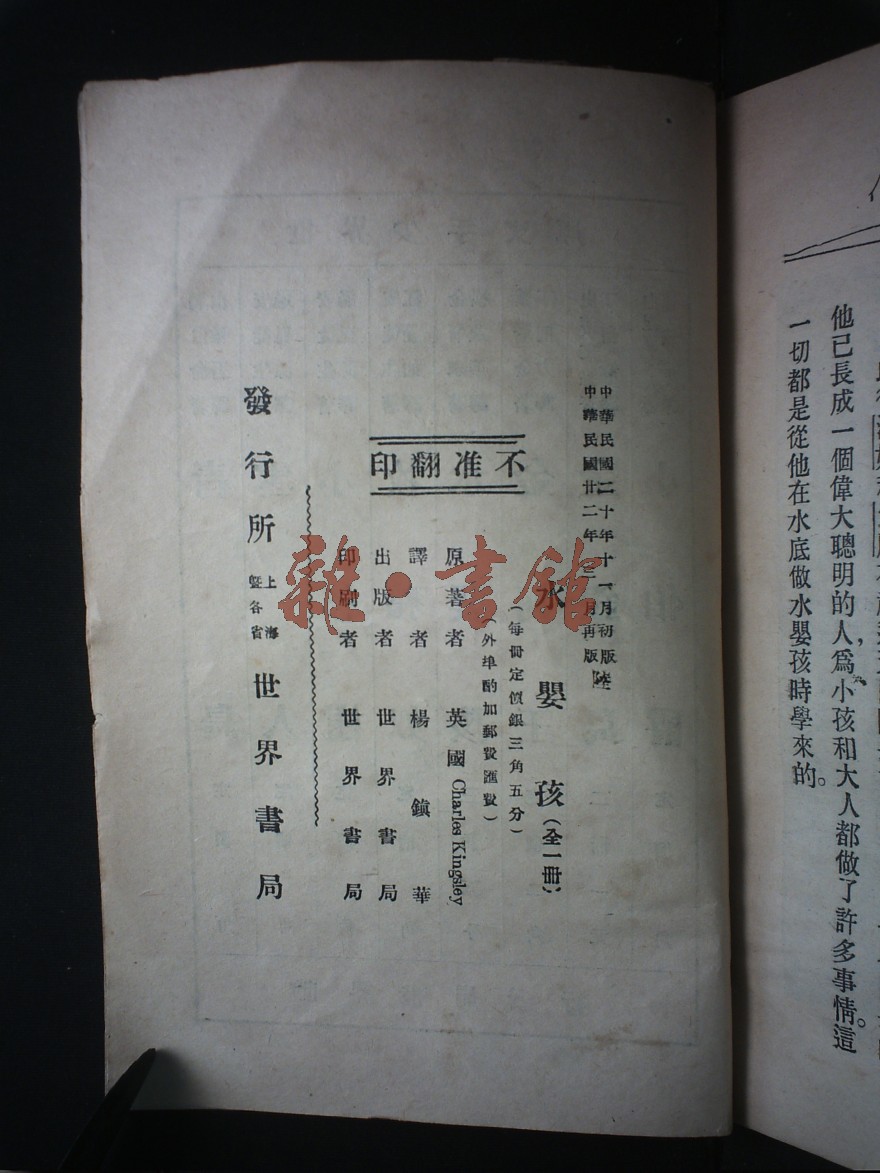 他已長成一個偉大聰明的人，為小孩和大人都做了許多事情。這
一切都是從他在水底做水嬰孩時學來的。
中華民國二十年十一月初版
中華民國廿二年三月再版
水嬰孩（全一冊）
（每冊定價銀三角五分）
（外埠酌加郵費匯費）
不准翻印
原著者 英國 Charles Kingsley
譯者 楊鎮華
出版者 世界書局
印刷者 世界書局
發行所 上海暨各省 世界書局
雜·書館